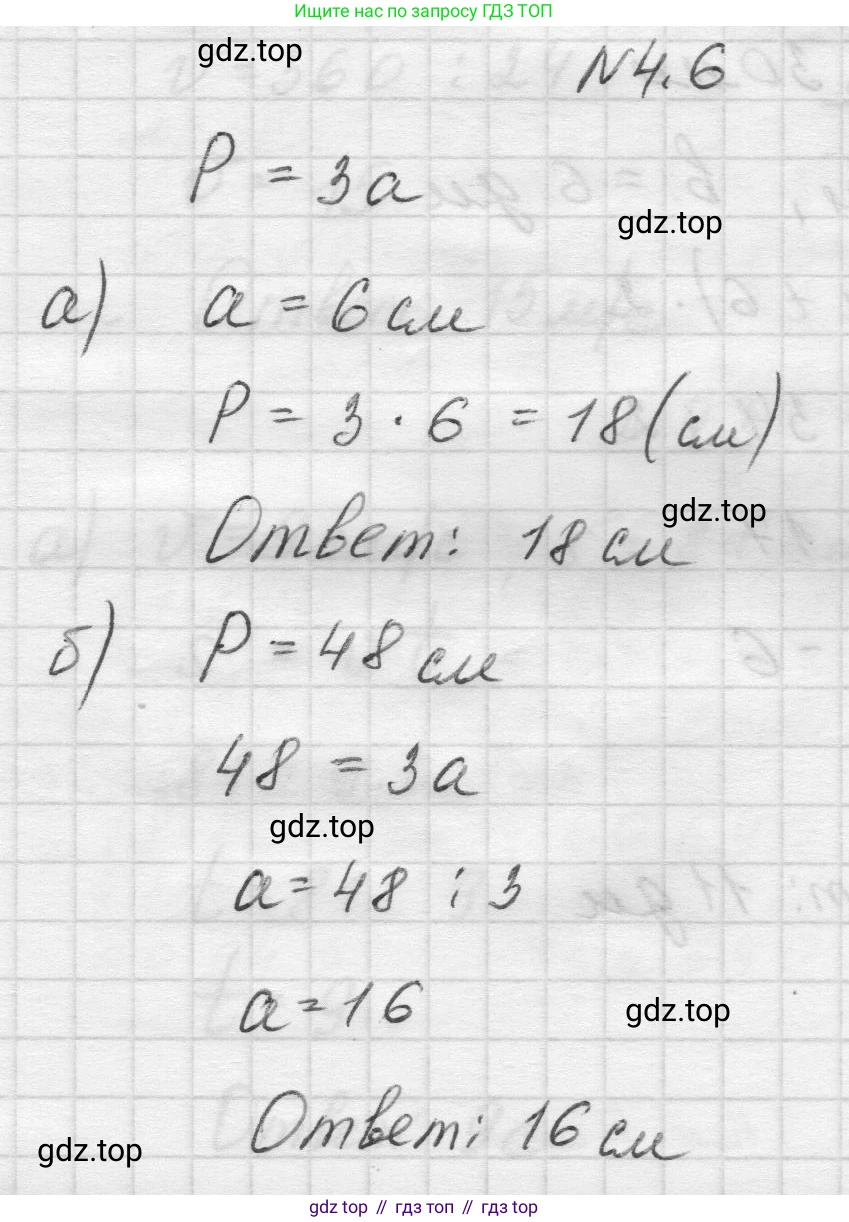 Ищите нас по запросу ГДЗ ТОП
gdz.top
N4.6
P = 3a
gdz.top
а) a = 6 см
P = 3 · 6 = 18 (см)
gdz.top
Ответ: 18 см
б) P = 48 см
48 = 3a
gdz.top
a = 48 : 3
a = 16
gdz.top
Ответ: 16 см
gdz.top
gdz top // гдз топ // gdz top